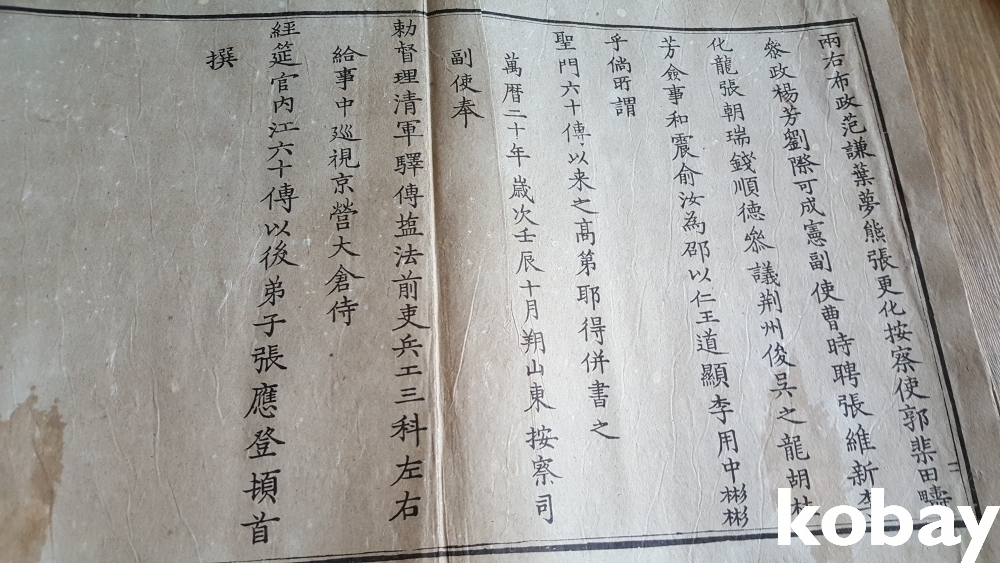 兩右布政范謙葉夢熊張更化按察使郭棐田疇
叅政楊芳劉際可成憲副使曹時聘張維新李
化龍張朝瑞錢順德叅議荆州俊吳之龍胡
芳僉事和震俞汝為邵以仁王道顯李用中彬彬
乎倘所謂
聖門六十傳以来之高第耶得併書之
萬曆二十年歲次壬辰十月朔山東按察司
副使奉
勑督理清軍驛傳塩法前吏兵工三科左右
給事中廵視京營大倉侍
經筵官内江六十傳以後弟子張應登頓首
撰
二
kobay